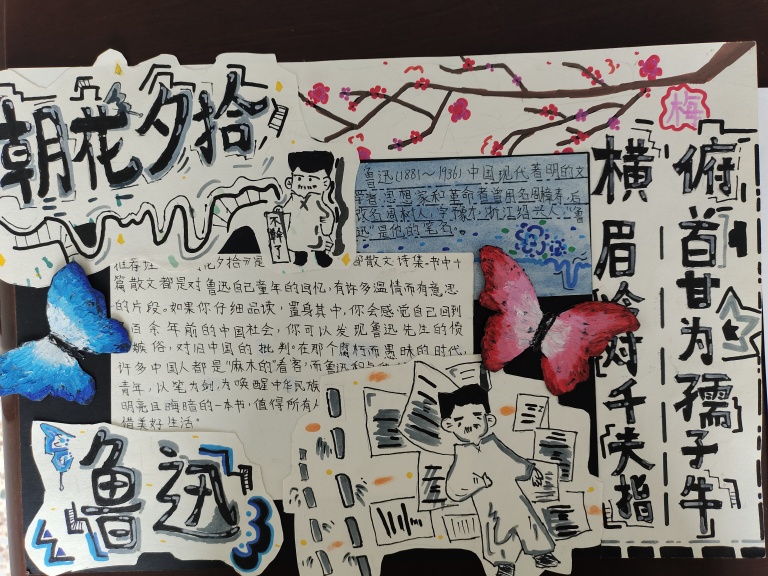 朝花夕拾
梅
俯首甘为孺子牛
横眉冷对千夫指
鲁迅(1881～1936)中国现代著明的文
学者,思想家和革命者曾用名周樟寿,后
改名周树人,字豫才,浙江绍兴人."鲁
迅"是他的笔名。
花夕拾》是 散文诗集.书中十
篇散文都是对鲁迅自己童年的回忆,有许多温情而有意思
的片段。如果你仔细品读,置身其中,你会感觉自己回到
百余年前的中国社会,你可以发现鲁迅先生的愤
嫉俗,对旧中国的批判。在那个腐朽而愚昧的时代,
许多中国人都是"麻木的"看客,而鲁迅
青年,以笔为剑,为唤醒中华民族
明亮且晦暗的一本书,值得所有人
惜美好生活。
鲁迅